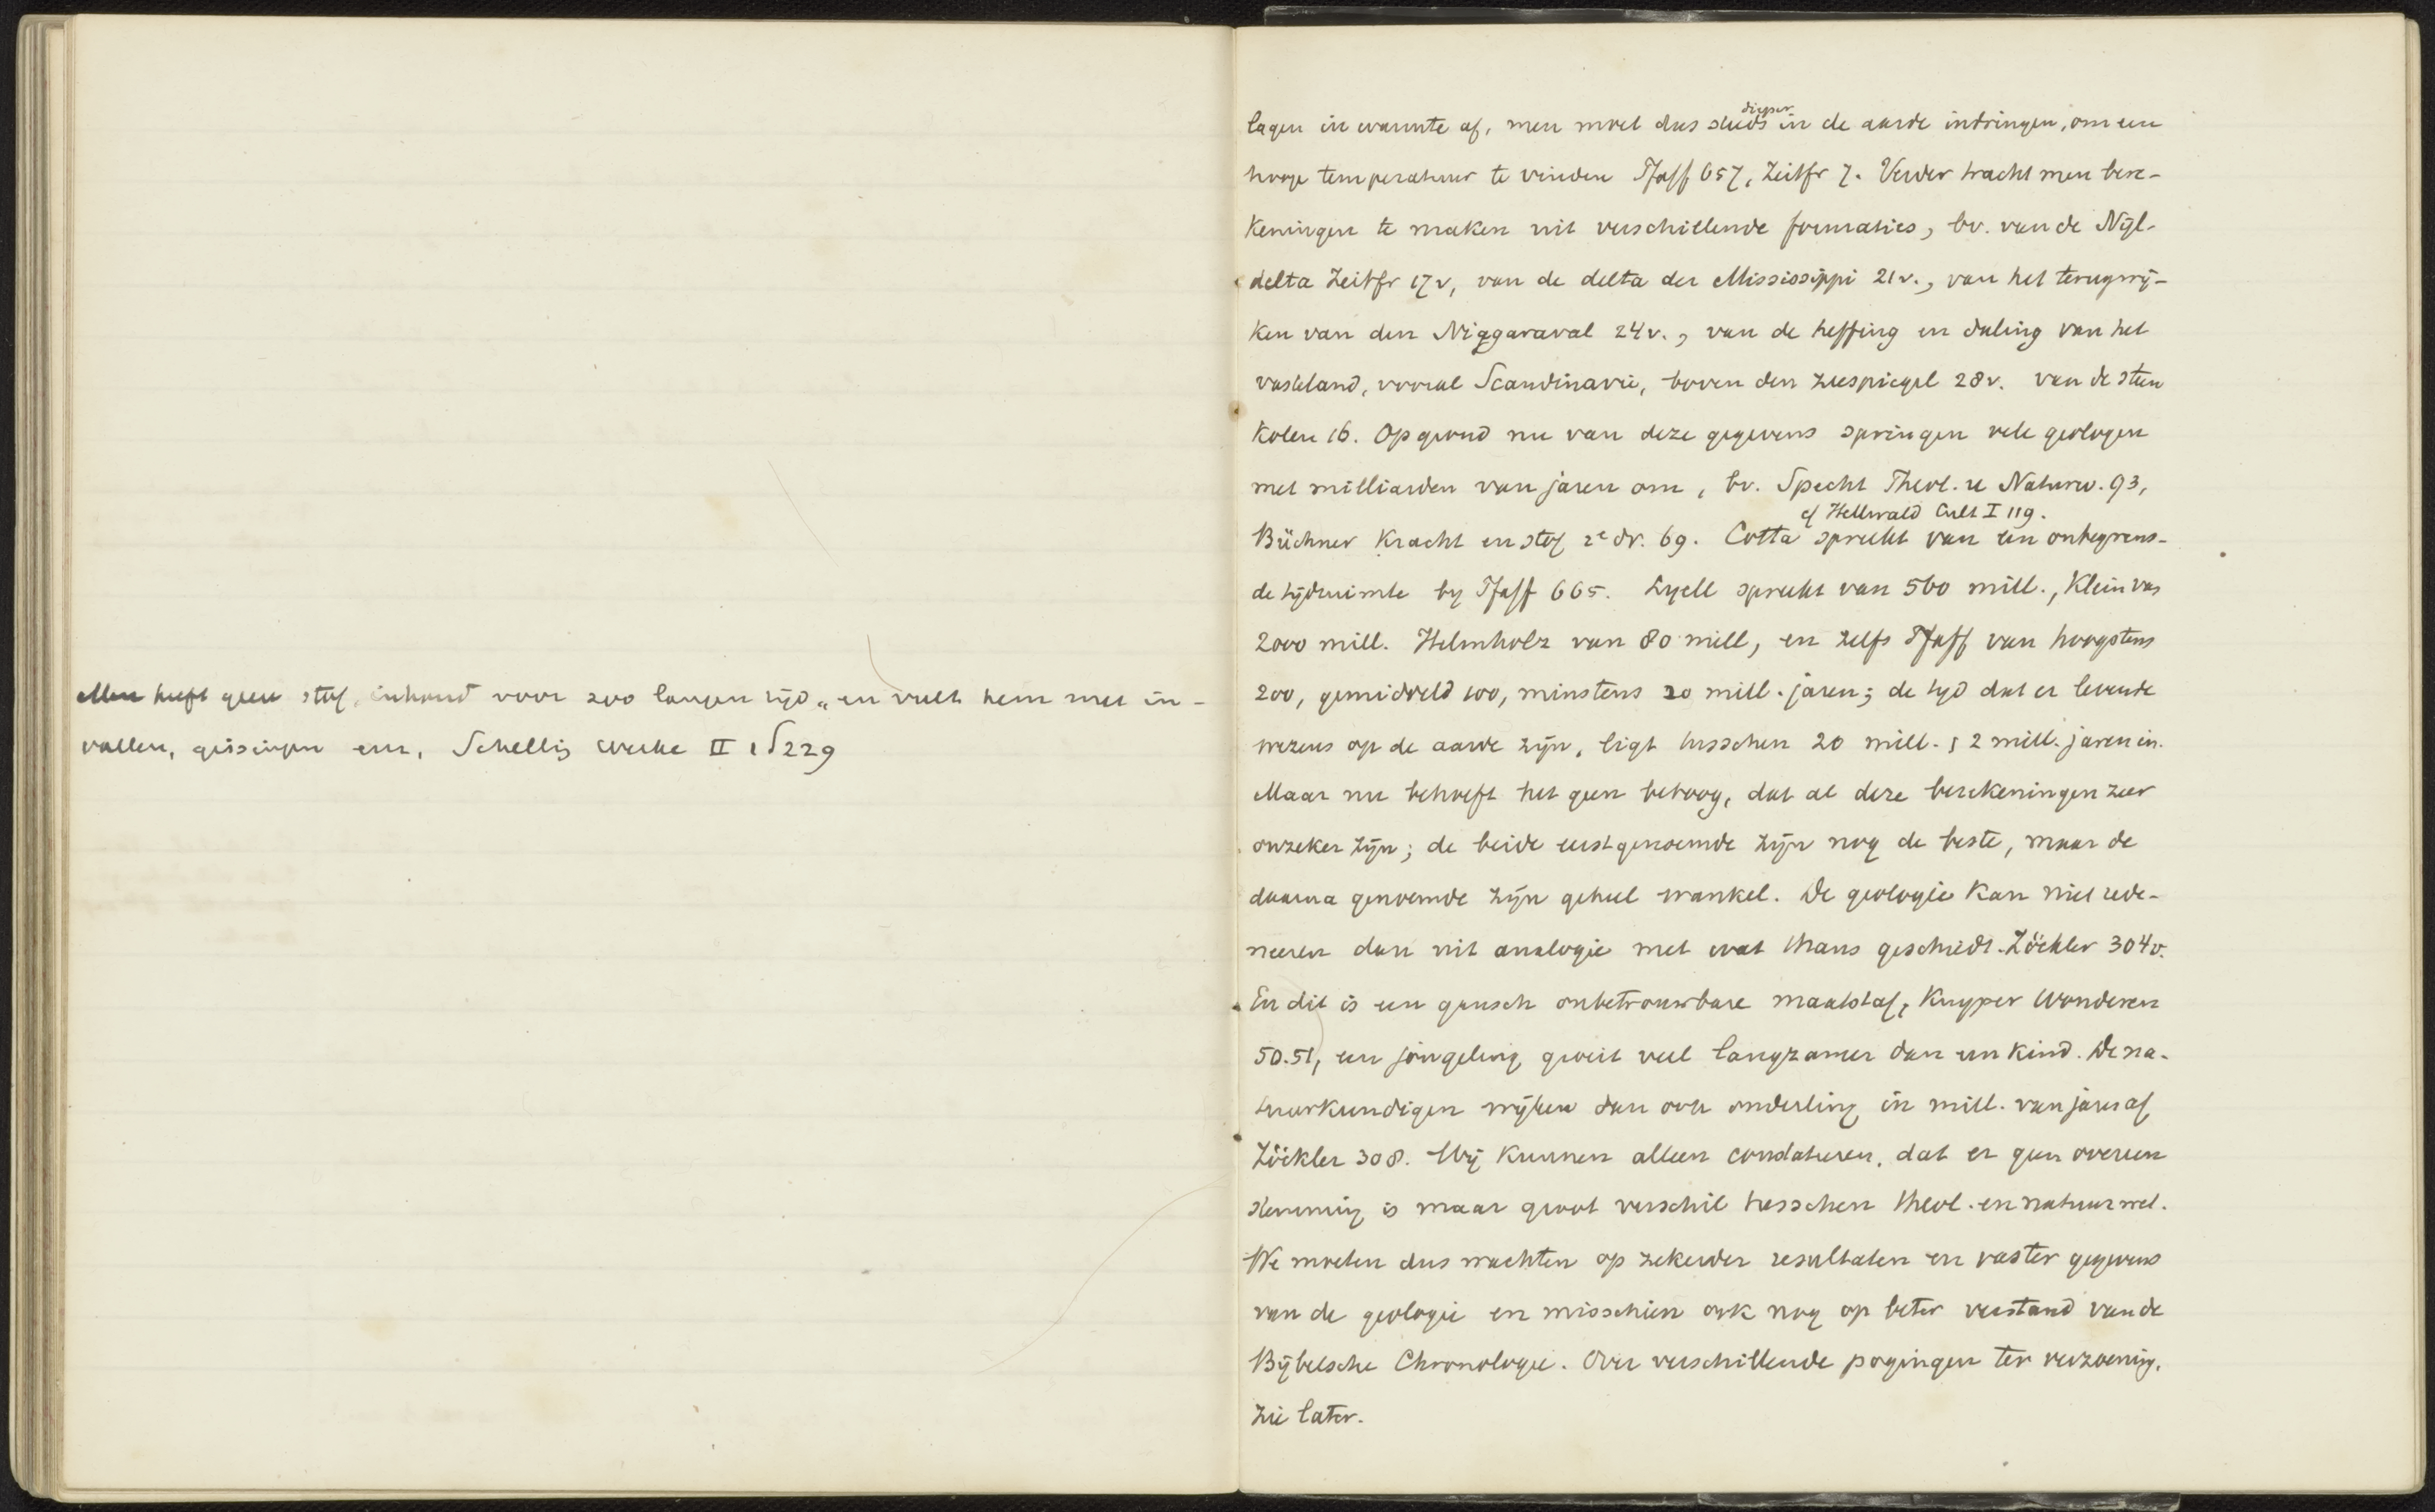 Men heeft geen stof, inhoud voor zoo langen tijd „en vult hem met in-
vallen, gissingen enz, Schelling Werke II 1 S 229
lagen in warmte af, men moet dus steeds dieper in de aarde indringen, om een
hooge temperatuur te vinden Pfaff 657, Zeitfr 7. Verder tracht men bere-
keningen te maken uit verschillende formaties, bv. van de Nijl-
delta Zeitfr 17v, van de delta der Mississippi 21v., van het terugwij-
ken van den Niagaraval 24v., van de heffing en daling van het
vasteland, vooral Scandinavie, boven den zeespiegel 28v. van de steen
kolen 16. Op grond nu van deze gegevens springen vele geologen
met milliarden van jaren om, bv. Specht Theol. u Naturw. 93,
cf Hellwald Cult I 119.
Büchner Kracht en stof 2e dr. 69. Cotta spreekt van een onbegrens-
de tijdruimte by Pfaff 665. Lyell spreekt van 560 mill., Klein van
2000 mill. Helmholz van 80 mill, en zelfs Pfaff van hoogstens
200, gemiddeld 100, minstens 20 mill. jaren; de tyd dat er levende
wezens op de aarde zijn, ligt tusschen 20 mill. 2 mill. jaren in.
Maar nu behoeft het geen betoog, dat al deze berekeningen zeer
onzeker zijn; de beide eerstgenoemde zijn nog de beste, maar de
daarna genoemde zijn geheel wankel. De geologie kan niet rede-
neeren dan uit analogie met wat thans geschiedt. Zöckler 304v.
En dit is een gansch onbetrouwbare maatstaf, Kuyper Wonderen
50.51, een jongeling groeit veel langzamer dan een kind. De na-
tuurkundigen wijken dan ook onderling in mill. van jaren af
Zöckler 308. Wij kunnen alleen constateren, dat er geen overeen
stemming is maar groot verschil tusschen theol. en natuurwet.
We moeten dus wachten op zekerder resultaten en vaster gegevens
van de geologie en misschien ook nog op beter verstand van de
Bijbelsche Chronologie. Over verschillende pogingen ter verzoening,
zie later.